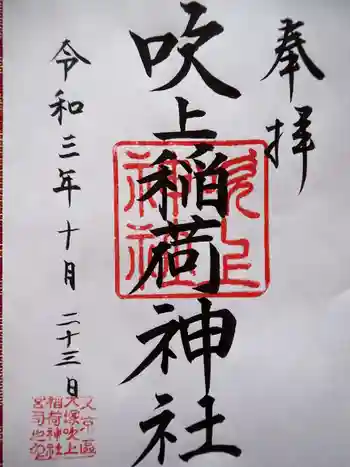 奉拝
吹上稲荷神社
令和三年十月二十三日
吹上
神社
文京區
大塚吹上
稲荷神社
宮司之印